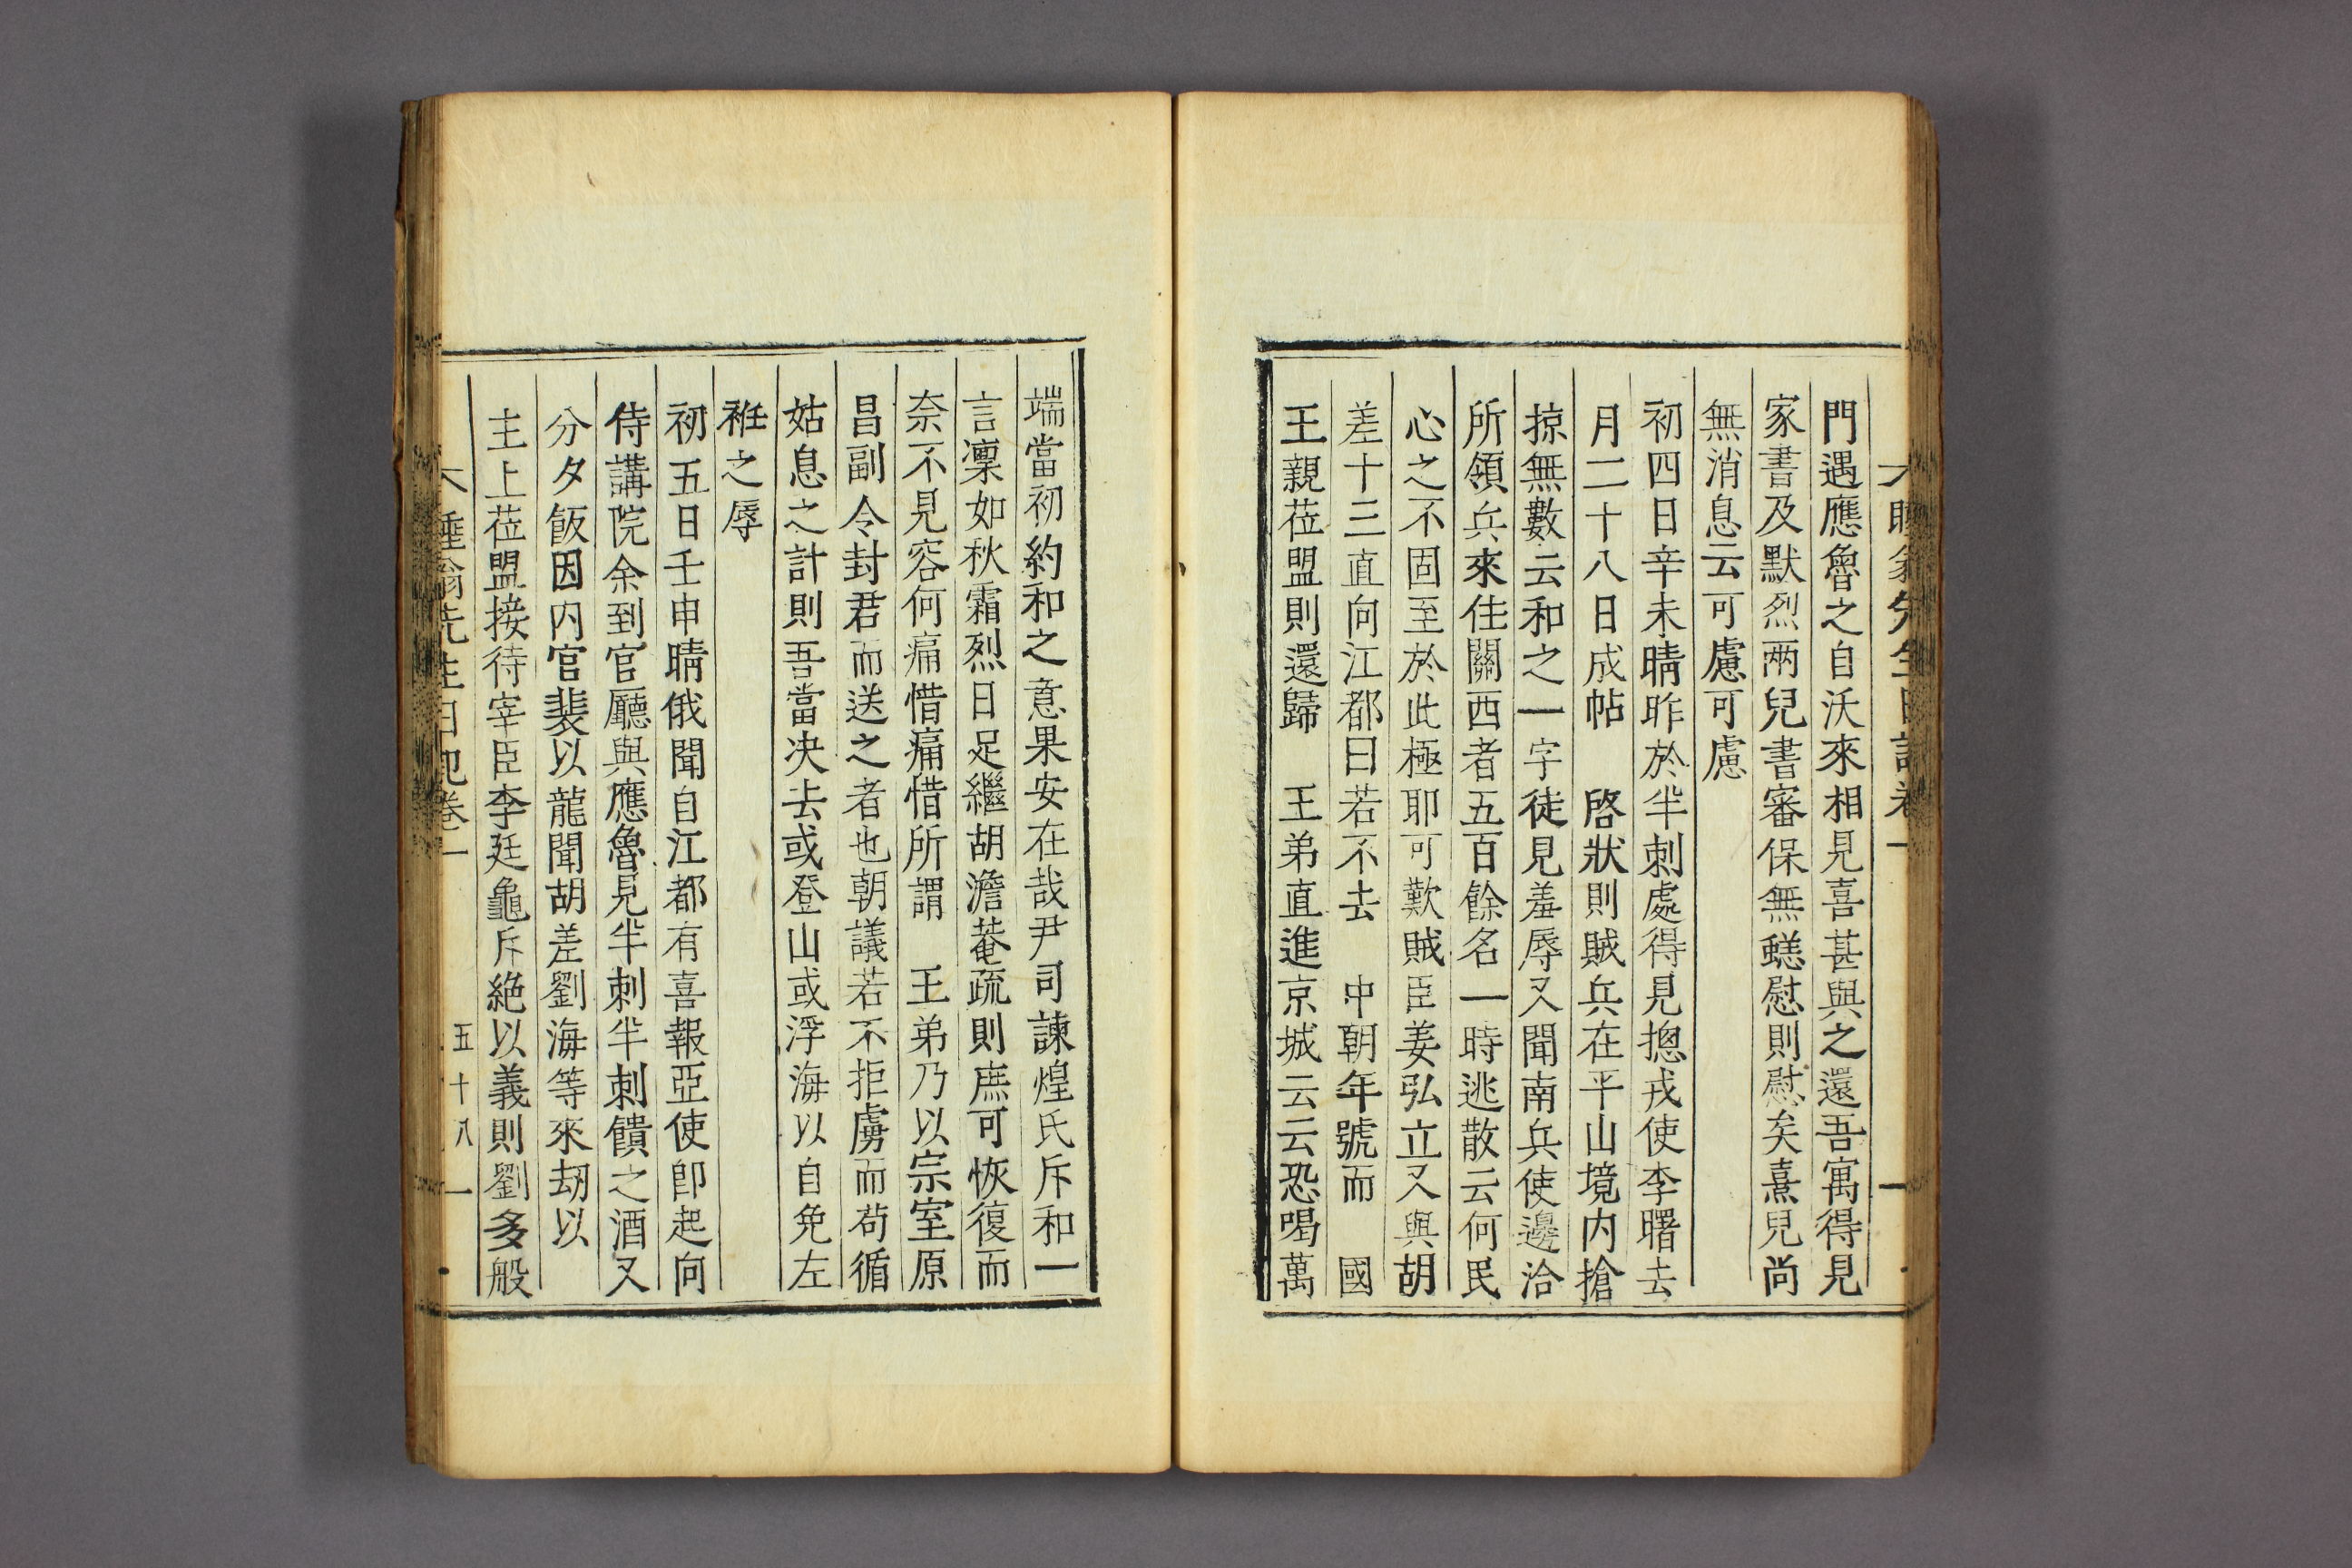 門遇應魯之自沃來相見喜甚與之還吾寓得見
家書及默烈兩兒書審保無蟋慰則慰矣熹兒尚
無消息云可慮可慮
初四日辛未晴昨於半刺處得見摠戎使李曙去
月二十八日成帖 啓狀則賊兵在平山境内搶
掠無數云和之一字徒見羞辱又聞南兵使邊洽
所領兵來住關西者五百餘名一時逃散云何民
心之不固至於此極耶可歎賊臣姜弘立又與胡
差十三直向江都曰若不去 中朝年號而 國
王親莅盟則還歸 王弟直進京城云云恐喝萬
端當初約和之意果安在哉尹司諫煌氏斥和一
言凜如秋霜烈日足繼胡澹菴疏則庶可恢復而
奈不見容何痛惜痛惜所謂 王弟乃以宗室原
昌副令封君而送之者也朝議若不拒虜而苟循
姑息之計則吾當决去或登山或浮海以自免左
袵之辱
初五日壬申晴俄聞自江都有喜報亞使卽起向
侍講院余到官廳與應魯見半刺半刺饋之酒又
分夕飯因内官裴以龍聞胡差劉海等來刼以
主上莅盟接待宰臣李廷龜斥絶以義則劉多般
先生日記卷一 五十八